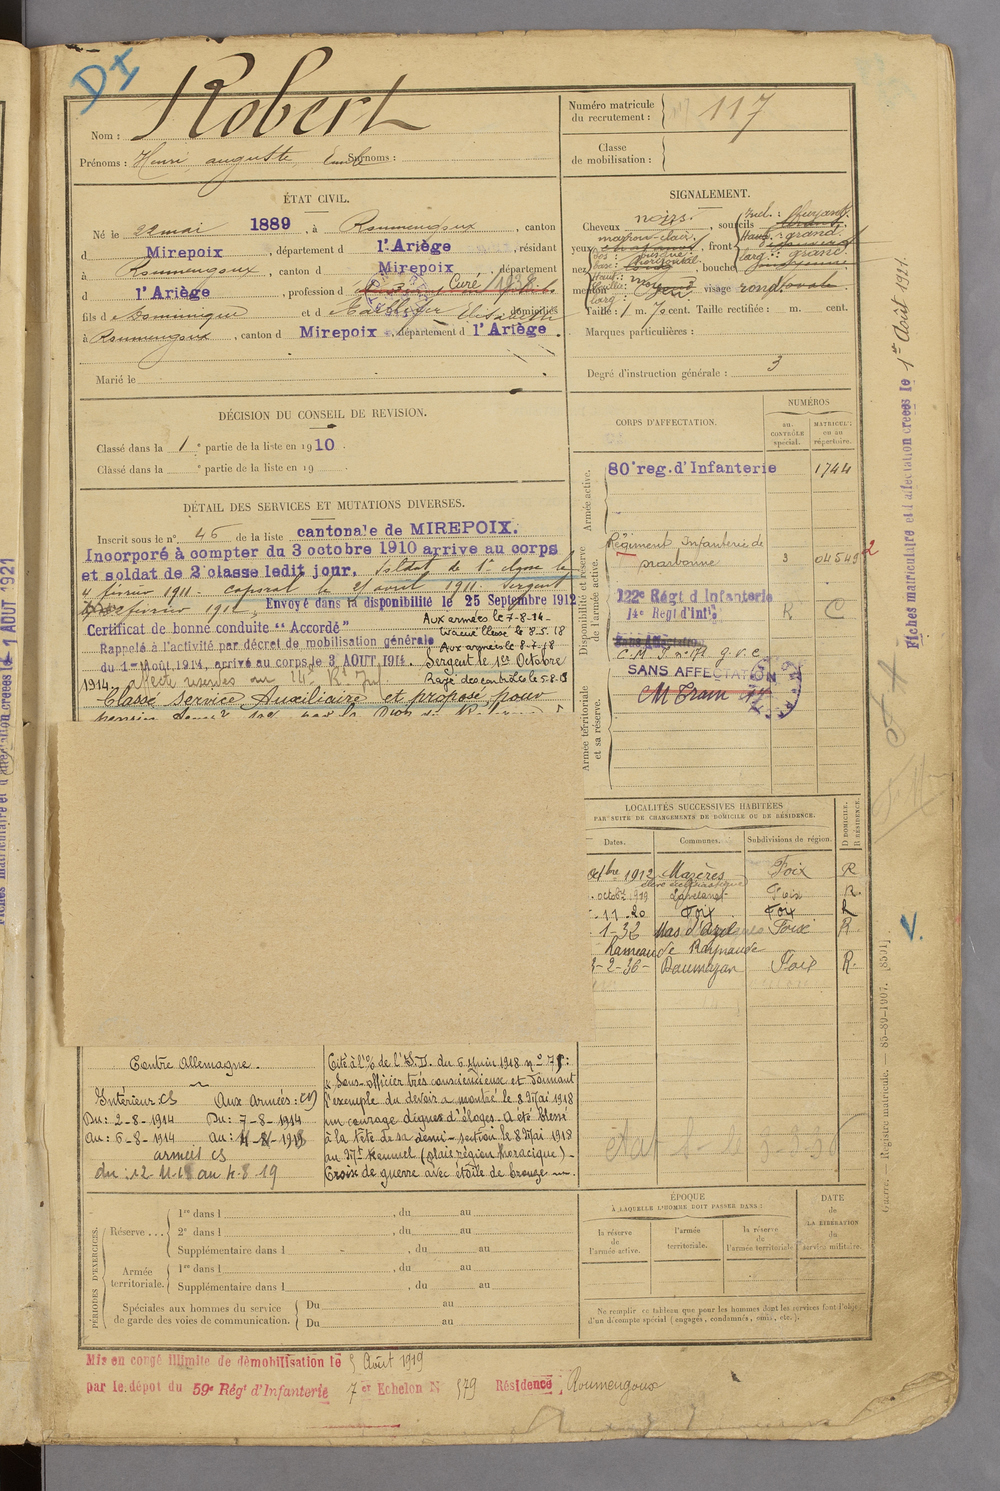 DI
Robert
Nom :
Prénoms : Henri, auguste, Emile Surnoms :
Numéro matricule
du recrutement : 117
Classe
de mobilisation :
ÉTAT CIVIL.
Né le 22 mai 1889, à Roumengoux, canton
d Mirepoix, département d l'Ariège, résidant
à Roumengoux, canton d Mirepoix, département
d l'Ariège, profession d Curé
fils d Dominique et d Elisabeth domiciliés
à Roumengoux, canton d Mirepoix, département d l'Ariège.
Marié le
SIGNALEMENT.
Cheveux noirs. , sourcils
yeux marron clair, front
nez , bouche
menton visage rond ovale
Taille : 1 m. 70 cent. Taille rectifiée : m. cent.
Marques particulières :
Degré d'instruction générale : 3
DÉCISION DU CONSEIL DE REVISION.
Classé dans la 1e partie de la liste en 1910.
Classé dans la e partie de la liste en 19
DÉTAIL DES SERVICES ET MUTATIONS DIVERSES.
Inscrit sous le n° 46 de la liste cantonale de MIREPOIX.
Incorporé à compter du 3 octobre 1910 arrive au corps
et soldat de 2e classe ledit jour. Soldat de 1e classe le
4 février 1911. Caporal le 21 avril 1911. Sergent
février 1912. Envoyé dans la disponibilité le 25 Septembre 1912
Certificat de bonne conduite "Accordé"
Aux armées le 7-8-14-
Evacué blessé le 8-5-18
Rappelé à l'activité par décret de mobilisation générale
Aux armées le 8-7-18
du 1er Août 1914, arrivé au corps le 3 AOUT 1914. Sergent le 1er Octobre
1914. Rayé des contrôles le 5-8-19
Classé Service Auxiliaire et proposé pour
CORPS D'AFFECTATION.
NUMÉROS
au CONTRÔLE spécial.
MATRICULE ou au répertoire.
Armée active.
80e reg. d'Infanterie 1744
Disponibilité et réserve de l'armée active.
Régiment Infanterie de
Narbonne 3 04549
122e Régt d'Infanterie
14e Regt d'Inf R C
Sans Affectation
SANS AFFECTATION
CM Train 17
Armée territoriale et sa réserve.
LOCALITÉS SUCCESSIVES HABITÉES
PAR SUITE DE CHANGEMENTS DE DOMICILE OU DE RÉSIDENCE.
Dates. Communes. Subdivisions de région. D DOMICILE. R RÉSIDENCE.
octbre 1912 Mazères Foix R
octobre 1919 Lavelanet Foix R.
11-20 Foix Foix R
1-32 Mas d'Azil Foix R.
Hameau de Raynaude
3-2-36- Daumazan Foix R.
Contre Allemagne.
Intérieur CS Aux armées : CD
Du : 2-8-1914 Du : 7-8-1914
Au : 6-8-1914 Au : 11-11-1918
armées CS
du : 12-11-18 au 4-8-19
Cité à l'O/ de l'I.D. du 6 Juin 1918 n° 75 :
"Sous-officier très consciencieux et donnant
l'exemple du devoir a montré le 8 Mai 1918
un courage dignes d'éloges. A été blessé
à la tête de sa demi-section le 8 Mai 1918
au Mt Kemmel (plaie région thoracique) -
Croix de guerre avec étoile de bronze
PÉRIODES D'EXERCICES.
Réserve . . . 1re dans l , du au
2e dans l , du au
Supplémentaire dans l , du au
Armée territoriale. 1re dans l , du au
Supplémentaire dans l , du au
Spéciales aux hommes du service
de garde des voies de communication. Du au
Du au
ÉPOQUE
À LAQUELLE L'HOMME DOIT PASSER DANS :
la réserve de l'armée active.
l'armée territoriale.
la réserve de l'armée territoriale
DATE de LA LIBÉRATION du service militaire.
Ne remplir ce tableau que pour les hommes dont les services font l'objet
d'un décompte spécial (engagés, condamnés, omis, etc.).
Mis en congé illimité de démobilisation le 5 Août 1919
par le dépot du 59e Régt d'Infanterie 7e Echelon N° 579 Résidence Roumengoux
Fiches matriculaire et d'affectation créées le 1er Août 1921.
Guerre. — Registre matricule. — 85-89-1907. [8501]
Fiches matriculaire et d'affectation créées le 1 AOUT 1921